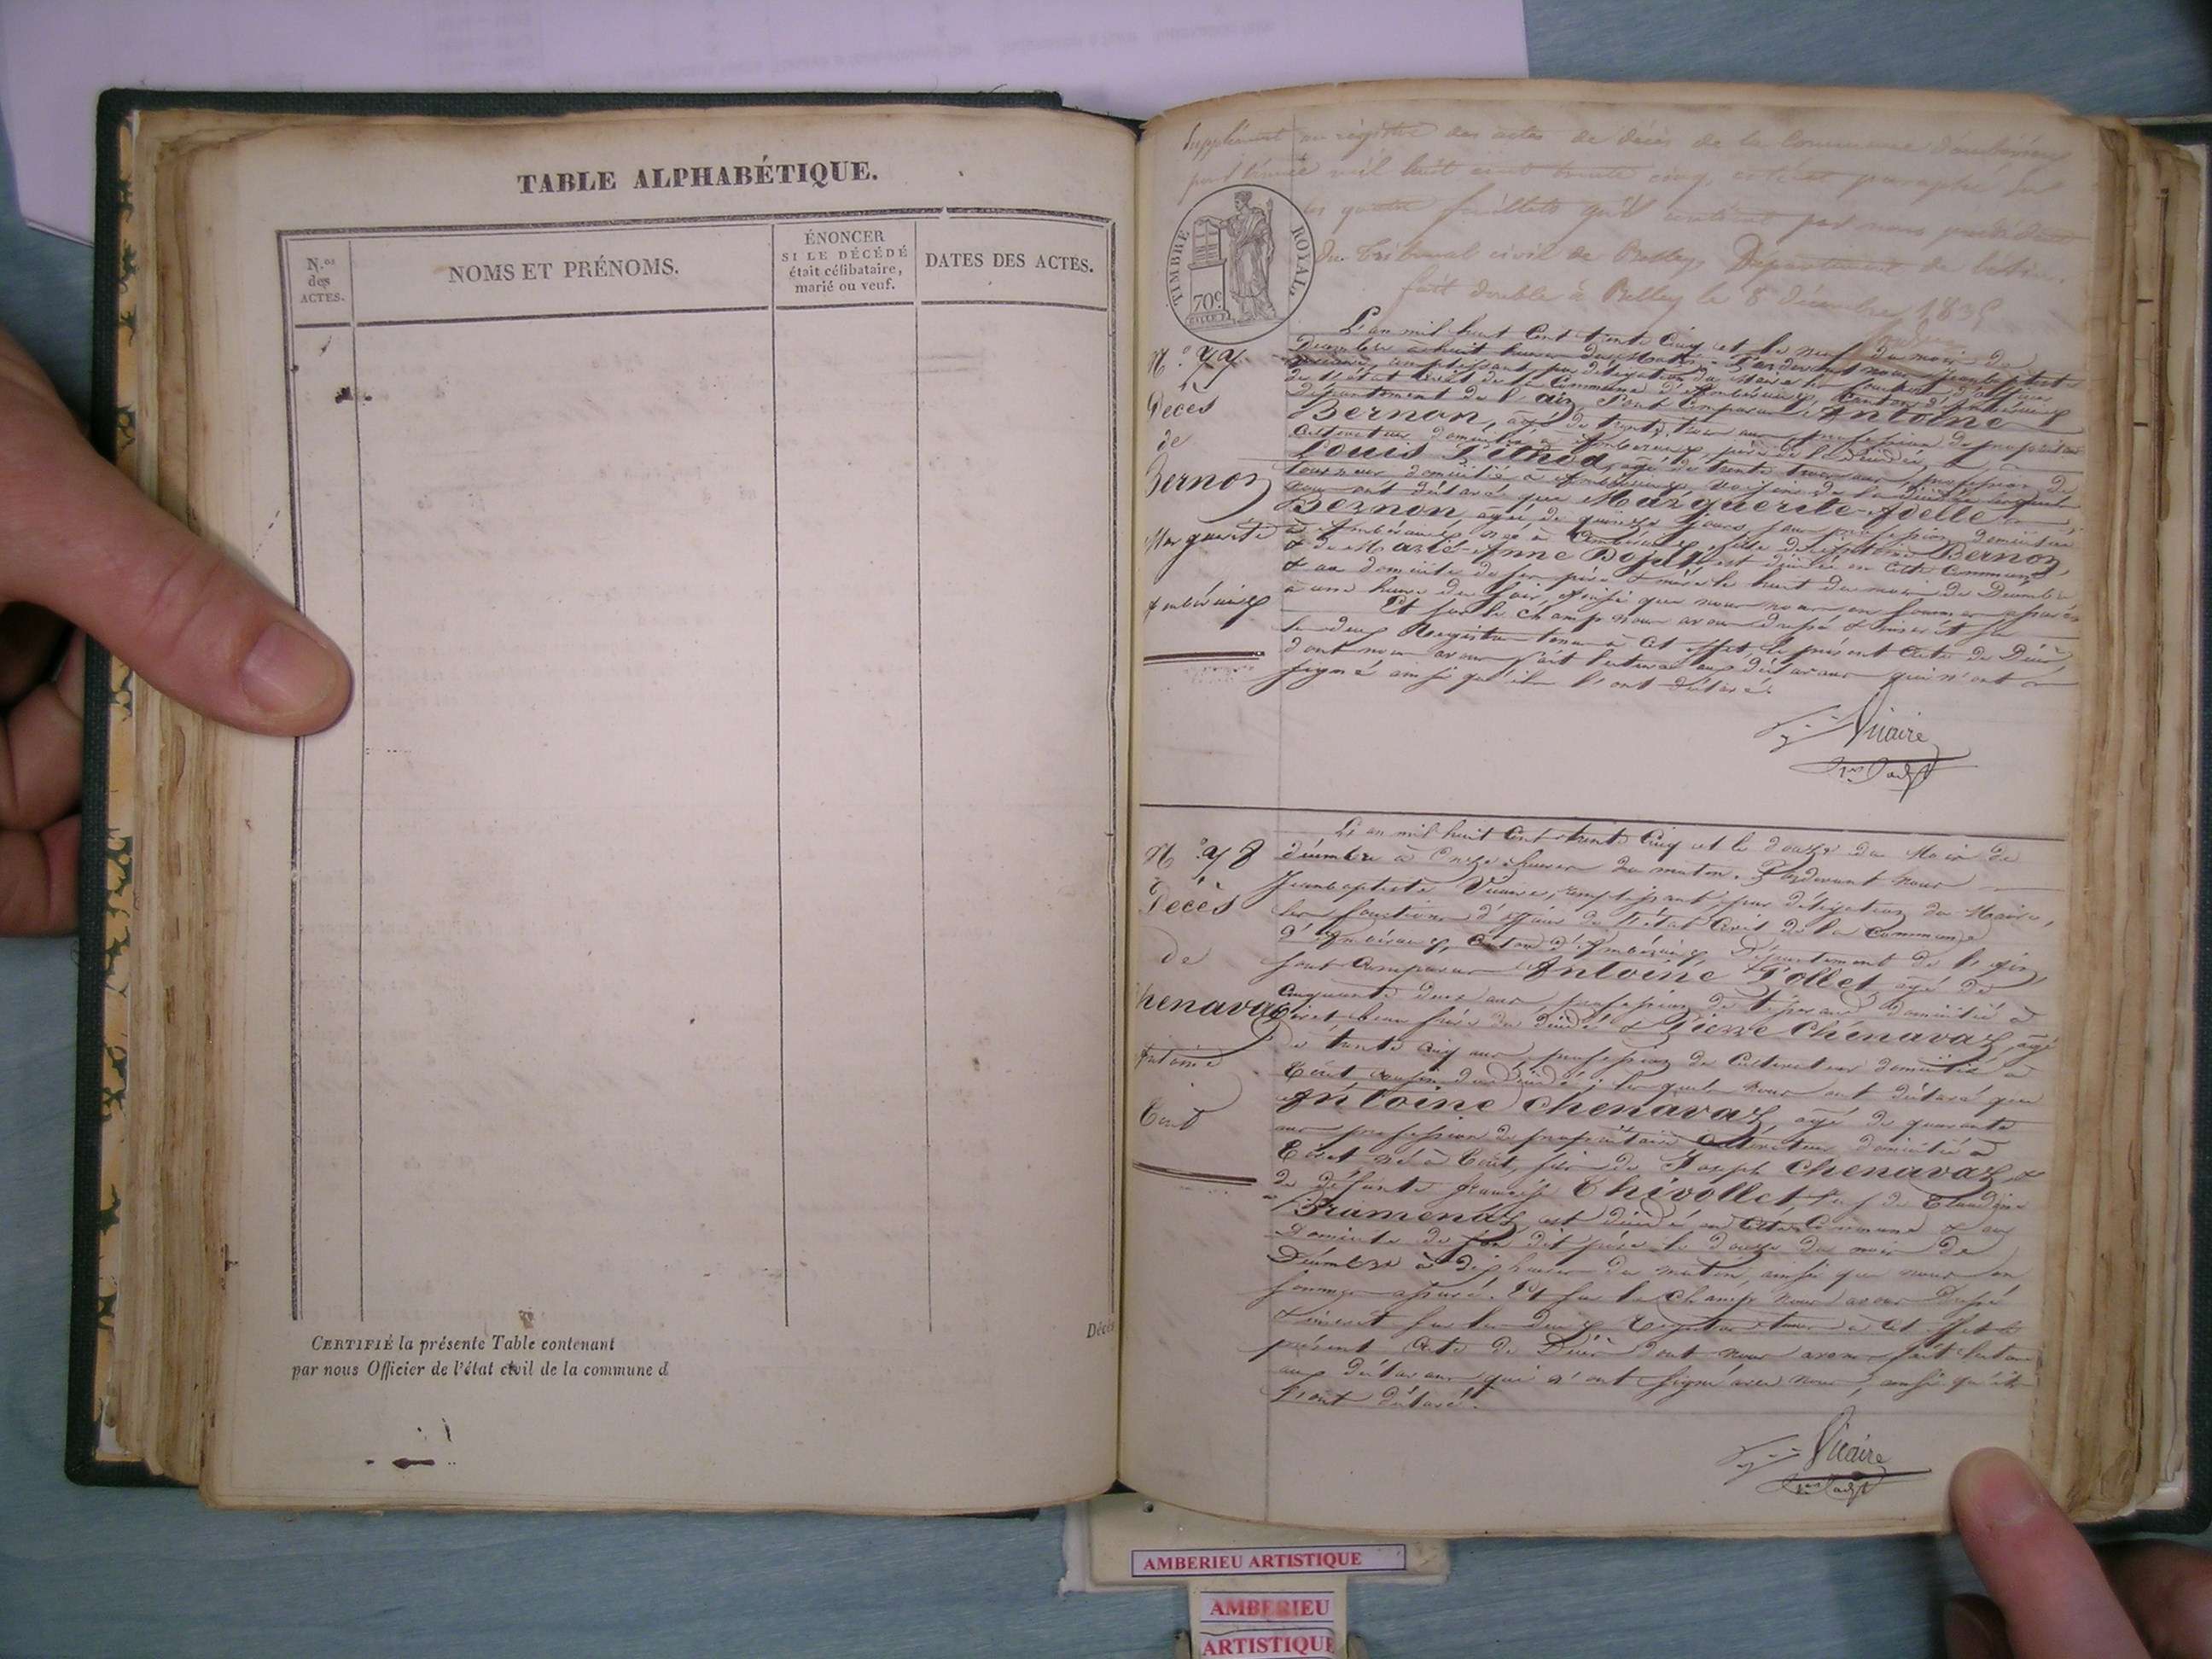 TABLE ALPHABÉTIQUE.
N.os
des
ACTES.
NOMS ET PRÉNOMS.
ÉNONCER
SI LE DÉCÉDÉ
était célibataire,
marié ou veuf.
DATES DES ACTES.
CERTIFIÉ la présente Table contenant
par nous Officier de l'état civil de la commune d
Décè
Supplément au régistre des actes de décès de la Commune d'ambérieux
pour l'année mil huit cent trente cinq, cotté et paraphé sur
les quatre feuillets qu'il contient par nous président
du Tribunal civil de Belley, Département de l'ain.
fait double à Belley le 8 décembre 1835
TIMBRE ROYAL
70 c.
N.o 77
Décès
de
Bernon
Marguerite
Ambérieux
L'an mil huit Cent trente Cinq et le neuf du mois de
Décembre à huit heures du Matin. Pardevant nous Jeanbaptiste
Vicaire, remplissant par délégation du Maire les fonctions d'officier
de l'état Civil de la Commune d'Ambérieux, Canton d'Ambérieux
Département de l'ain, Sont Comparus Antoine
Bernon, agé de trente trois ans profession de propriétaire
Cultivateur domicilié à Ambérieux, père de la décédée, &
Louis Tethod, agé de trente trois ans profession de
domicilié à Ambérieux, voisin de la décédée lesquels
nous ont déclaré que Marguerite-Adelle
Bernon, agée de quinze jours, sans profession domiciliée
à Ambérieux, née à Ambérieux fille de Antoine Bernon,
& de Marie-Anne est décédée en Cette Commune
& au domicile de ses père & mère le huit du mois de Décembre
à une heure du soir, ainsi que nous nous en sommes assurés
Et sur le Champ nous avons dressé & inscrit sur
les deux Registres tenus à Cet effet, le présent Acte de Décès,
dont nous avons fait lecture aux déclarans qui n'ont
signé ainsi qu'ils l'ont déclaré.
Vicaire
N.o 78
Décès
de
henavaz
Antoine
L'an mil huit Cent trente Cinq et le douze du Mois de
décembre à Onze heures du matin. Pardevant nous
Jeanbaptiste Vicaire, remplissant, par délégation du Maire,
les fonctions d'officier de l'état Civil de la Commune
d'Ambérieux, Canton d'Ambérieux Département de l'Ain,
sont Comparus Antoine Tollet, agé de
Cinquante deux ans, profession de tisserand domicilié à
beau frère du décédé & Pierre Chenavaz, agé
de trente cinq ans profession de Cultivateur domicilié à
cousin du décédé ; lesquels nous ont déclaré que
Antoine Chenavaz, agé de quarante
ans profession de propriétaire Cultivateur domicilié à
né à fils de Joseph Chenavaz &
de défunte françoise Chivollet, de Claudine
Bramenaz est décédé en Cette Commune & au
Domicile de son dit père le douze du mois de
Décembre à dix heures du matin, ainsi que nous en
sommes assuré. Et sur le Champ nous avons dressé
& inscrit sur les deux Registres tenus à Cet effet le
présent Acte de Décès dont nous avons fait lecture
aux déclarans qui n'ont signé avec nous, ainsi qu'ils
l'ont déclaré.
Vicaire
AMBERIEU ARTISTIQUE
AMBERIEU
ARTISTIQUE